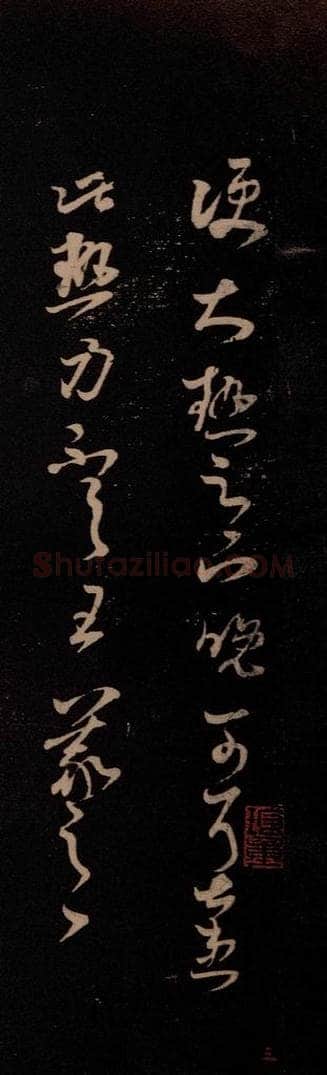 便大熱足下晚可耳甚患
此熱力不具王羲之上
Shufaziliao.COM
三